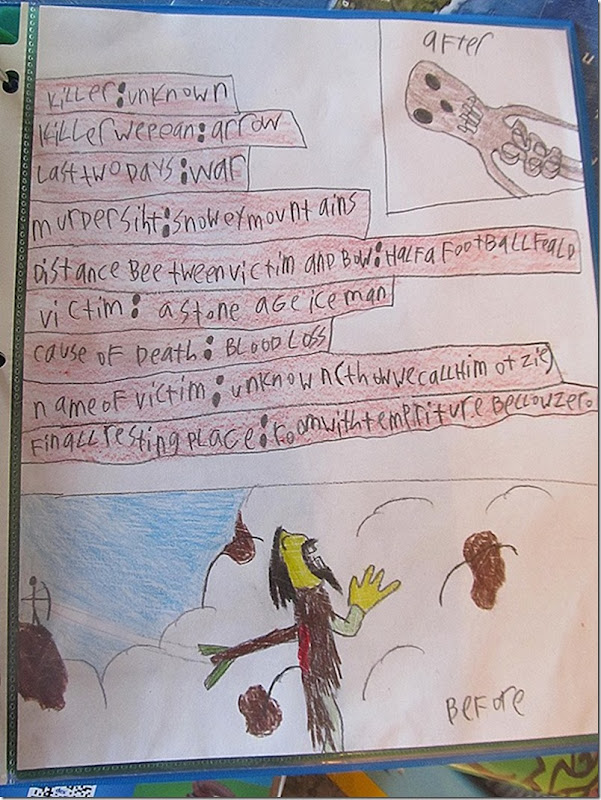 after
killer:unknown
killer weepan:arrow
Last two Days:war
murdersiht:snowey mountains
Distance Beetween victim and Bow:Half a football feald
victim: a stone age ice man
cause of Death: BLOOD LOSS
name of victim:unknown(thow we call Him otzie)
Finall resting place:room with tempriture Bellow zero
Before